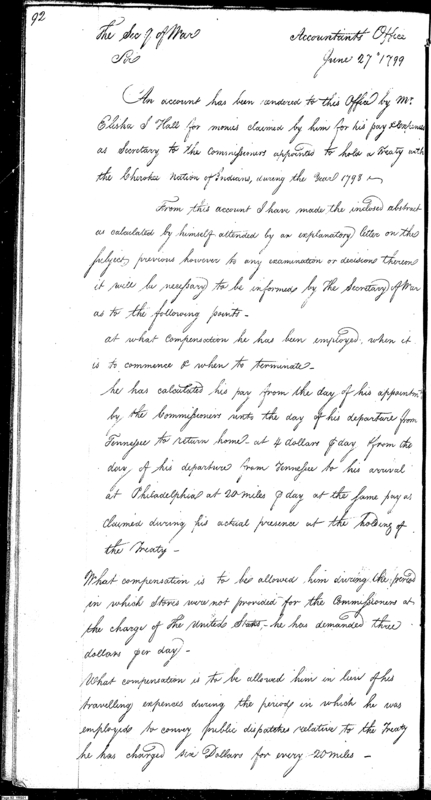 92
The Sec y of War
Accountants Office
Sir
June 27th 1799
An account has been rendered to this Office by Mr.
Elisha I Hall for monies claimed by him for his pay &
as Secretary to the Commissioners appointed to hold a Treaty with
the Cherokee Nation of Indians, during the Year 1798
From this account I have made the inclosed abstract
as calculated by himself attended by an explanatory letter on the
subject, previous however to any examination or decision thereon
it will be necessary to be informed by The Secretary of War
as to the following points-
at what compensation he has been employed, when it
is to commence & when to terminate-
he has calculated his pay from the day of his appointmt
by the Commissioners unto the day of his departure from
Tennessee to return home at 4 dollars ⅌ day & from the
day of his departure from Tennessee to his arrival
at Philadelphia at 20 miles ⅌ day at the same pay as
claimed during his actual presence at the holding of
the Treaty-
What compensation is to be allowed him during the period
in which Stores were not provided for the Commissioners at
the charge of The United States - he has demanded three
dollars per day-
What compensation is to be allowed him in lieu of his
travelling expences during the periods in which he was
employed to convey public dispatches relative to the Treaty
he has charged six Dollars for every 20 miles-